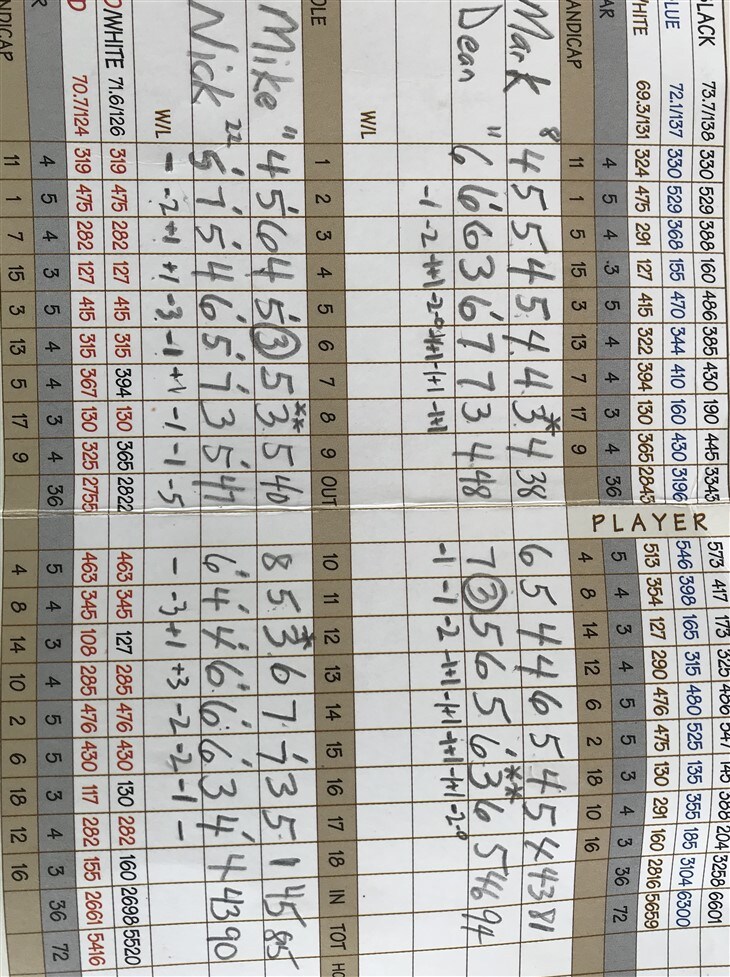 LACK 73.7/138 330 529 388 160 486 385 430 190 445 3343 573 417 173 325 486 547 145 388 204 3258 6601
LUE 72.1/137 330 529 368 155 470 344 410 160 430 3196 546 398 165 315 480 525 135 355 185 3104 6300
HITE 69.3/131 324 475 291 127 415 322 394 130 365 2843 513 354 127 290 476 475 130 291 160 2816 5659
AR 4 5 4 3 5 4 4 3 4 36 PLAYER 5 4 3 4 5 5 3 4 3 36 72
ANDICAP 11 1 5 15 3 13 7 17 9 4 8 14 12 6 2 18 10 16
Mark 8 4 5 5 4 5 4 4 3* 4 38 6 5 4 4 6 5 4** 5 4 43 81
Dean 11 6 6 6 3 6 7 7 3 4 48 7 3 5 6 5 6 3 6 5 46 94
-1 -2 -1 -1 -2
W/L
OLE 1 2 3 4 5 6 7 8 9 OUT 10 11 12 13 14 15 16 17 18 IN TOT HC
Mike 11 4 5 6 4 5 3 5 3** 5 40 8 5 3* 6 7 7 3 5 1 45 85
Nick 22 5 7 5 4 6 5 7 3 5 47 6 4 4 6 6 6 3 4 4 43 90
W/L - -2 +1 +1 -3 -1 +1 -1 -1 -5 - -3 +1 +3 -2 -2 -1 -
D/WHITE 71.6/126 319 475 282 127 415 315 394 130 365 2822 463 345 127 285 476 430 130 282 160 2698 5520
D 70.7/124 319 475 282 127 415 315 367 130 325 2755 463 345 108 285 476 430 117 282 155 2661 5416
R 4 5 4 3 5 4 4 3 4 36 5 4 3 4 5 5 3 4 3 36 72
NDICAP 11 1 7 15 3 13 5 17 9 4 8 14 10 2 6 18 12 16